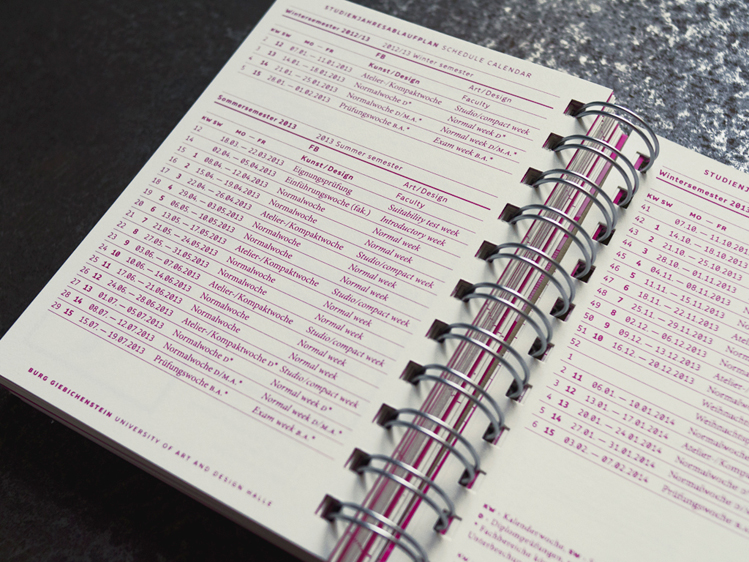 STUDIENJAHRESABLAUFPLAN SCHEDULE CALENDAR
Wintersemester 2012/13 2012/13 Winter semester
FB Art/Design
KW SW MO — FR Kunst/Design Faculty
2 12 07.01.—11.01.2013 Atelier-/Kompaktwoche Studio/compact week
3 13 14.01.—18.01.2013 Normalwoche D* Normal week D*
4 14 21.01.—25.01.2013 Normalwoche D/M.A.* Normal week D/M.A.*
5 15 28.01.—01.02.2013 Prüfungswoche B.A.* Exam week B.A.*
Sommersemester 2013 2013 Summer semester
FB Art/Design
KW SW MO — FR Kunst/Design Faculty
12 18.03.—22.03.2013 Eignungsprüfung Suitability test week
14 02.04.—05.04.2013 Einführungswoche (fak.) Introductory week
15 1 08.04.—12.04.2013 Normalwoche Normal week
16 2 15.04.—19.04.2013 Normalwoche Normal week
17 3 22.04.—26.04.2013 Atelier-/Kompaktwoche Studio/compact week
18 4 29.04.—03.05.2013 Normalwoche Normal week
19 5 06.05.—10.05.2013 Normalwoche Normal week
20 6 13.05.—17.05.2013 Atelier-/Kompaktwoche Studio/compact week
21 7 21.05.—24.05.2013 Normalwoche Normal week
22 8 27.05.—31.05.2013 Normalwoche Normal week
23 9 03.06.—07.06.2013 Atelier-/Kompaktwoche Studio/compact week
24 10 10.06.—14.06.2013 Normalwoche Normal week
25 11 17.06.—21.06.2013 Normalwoche Normal week
26 12 24.06.—28.06.2013 Atelier-/Kompaktwoche D* Studio/compact week
27 13 01.07.—05.07.2013 Normalwoche D* Normal week D*
28 14 08.07.—12.07.2013 Normalwoche D/M.A.* Normal week D/M.A.*
29 15 15.07.—19.07.2013 Prüfungswoche B.A.* Exam week B.A.*
BURG GIEBICHENSTEIN UNIVERSITY OF ART AND DESIGN HALLE
Wintersemester 2013
KW SW MO — FR
41 07.10.—11.10.
42 1 14.10.—18.10.
43 2 21.10.—25.10.
44 3 28.10.—01.11.2013
45 4 04.11.—08.11.2013
46 5 11.11.—15.11.2013
47 6 18.11.—22.11.2013
48 7 25.11.—29.11.2013
49 8 02.12.—06.12.2013
50 9 09.12.—13.12.2013
51 10 16.12.—20.12.2013
52
1
2 11 06.01.—10.01.2014
3 12 13.01.—17.01.2014
4 13 20.01.—24.01.2014 Normalwoche
5 14 27.01.—31.01.2014 Normalwoche
6 15 03.02.—07.02.2014 Prüfungswoche
KW = Kalenderwoche, SW =
D = Diplomprüfungen,
* Fachbereiche